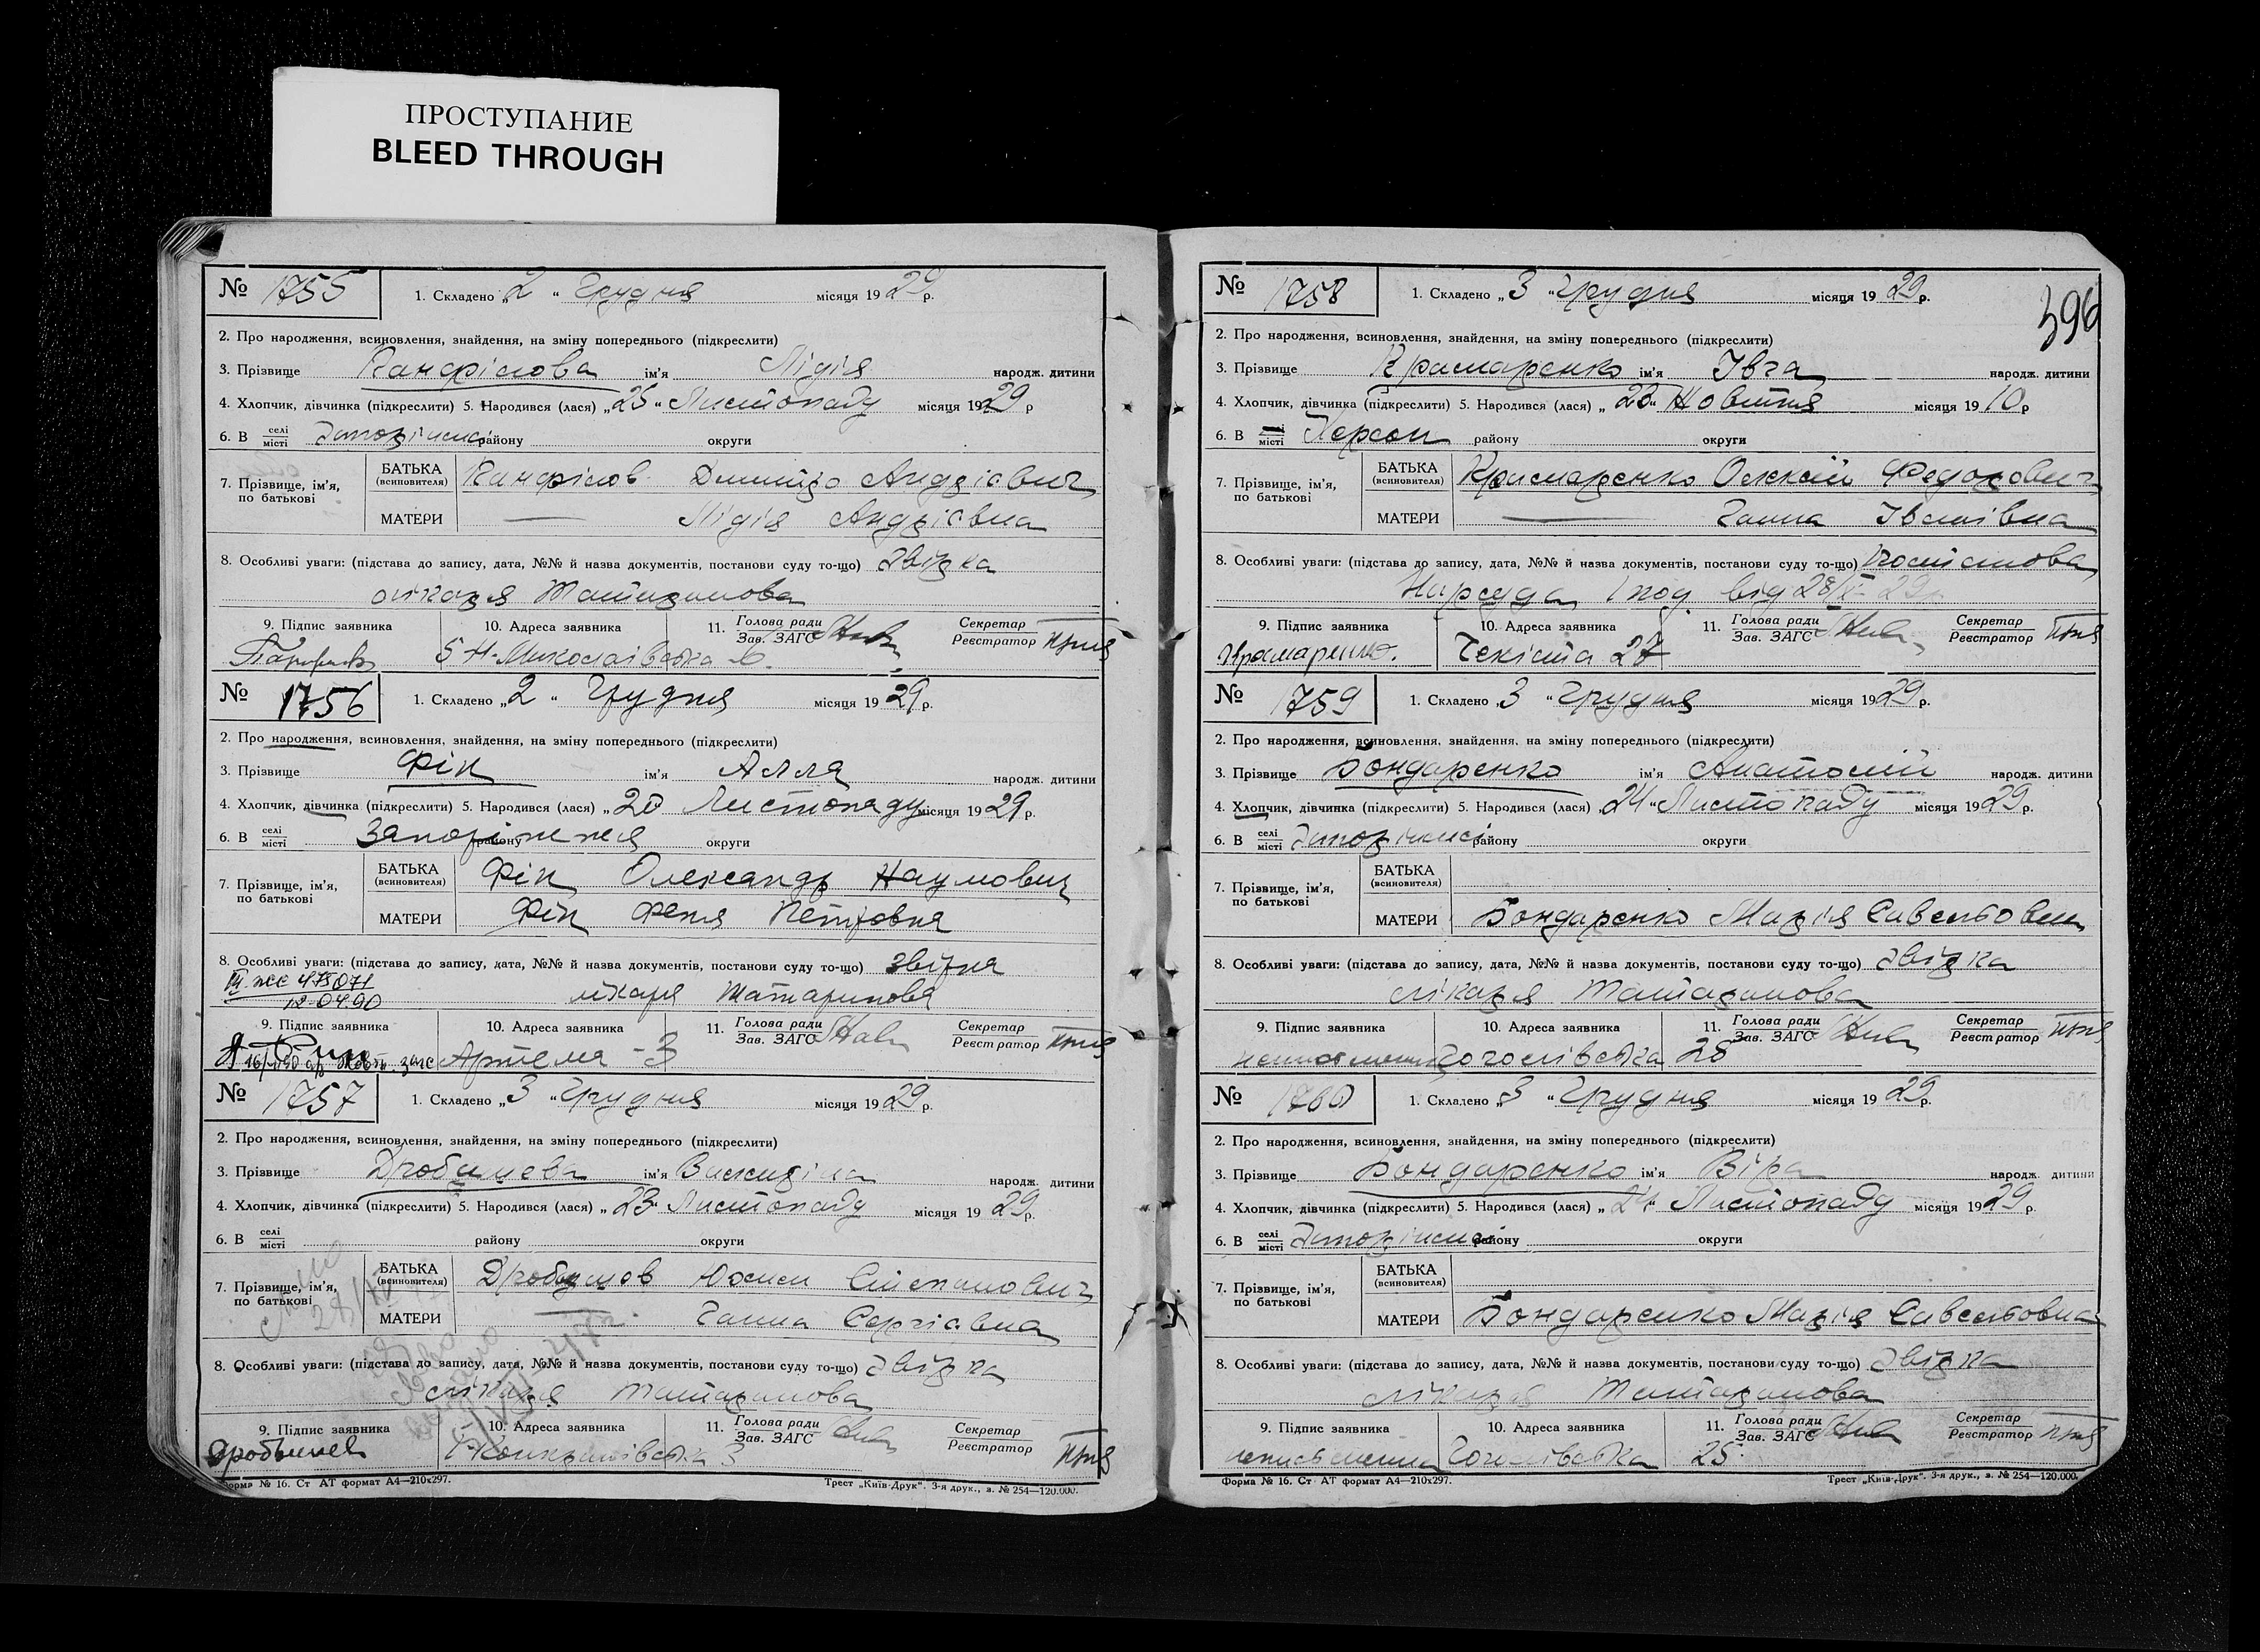 ПРОСТУПАНИЕ
BLEED THROUGH
№ 1755 1. Складено „2“ Грудня місяця 1929 р.
2. Про народження, всиновлення, знайдення, на зміну попереднього (підкреслити)
3. Прізвище Панфілова ім'я Лідія народж. дитини
4. Хлопчик, дівчинка (підкреслити) 5. Народився (лася) „25“ Листопаду місяця 1929 р
6. В селі місті Запоріжжі району округи
7. Прізвище, ім'я, по батькові
БАТЬКА (всиновителя) Панфілов Дмитро Андрієвич
МАТЕРИ — Лідія Андрієвна
8. Особливі уваги: (підстава до запису, дата, №№ й назва документів, постанови суду то-що) Звітка
лікаря Татаринова
9. Підпис заявника 10. Адреса заявника 11. Голова ради Зав. ЗАГС Секретар Реєстратор
Миколаївська
№ 1756 1. Складено „2“ Грудня місяця 1929 р.
2. Про народження, всиновлення, знайдення, на зміну попереднього (підкреслити)
3. Прізвище Фін ім'я Алла народж. дитини
4. Хлопчик, дівчинка (підкреслити) 5. Народився (лася) „20 Листопаду місяця 1929 р.
6. В селі місті Запоріжжя району округи
7. Прізвище, ім'я, по батькові
БАТЬКА (всиновителя) Фін Олександр Наумович
МАТЕРИ Фін Феня Петровна
8. Особливі уваги: (підстава до запису, дата, №№ й назва документів, постанови суду то-що) звітка
475071
12.04.90 лікаря Татаринова
9. Підпис заявника 10. Адреса заявника 11. Голова ради Зав. ЗАГС Секретар Реєстратор
Артема - 3
№ 1757 1. Складено „3“ Грудня місяця 1929 р.
2. Про народження, всиновлення, знайдення, на зміну попереднього (підкреслити)
3. Прізвище Дробишева ім'я народж. дитини
4. Хлопчик, дівчинка (підкреслити) 5. Народився (лася) „23“ Листопаду місяця 1929 р.
6. В селі місті району округи
7. Прізвище, ім'я, по батькові
БАТЬКА (всиновителя) Дробишов Юхим Степанович
МАТЕРИ — Ганна Сергієвна
8. Особливі уваги: (підстава до запису, дата, №№ й назва документів, постанови суду то-що) Звітка
лікаря Татаринова
9. Підпис заявника 10. Адреса заявника 11. Голова ради Зав. ЗАГС Секретар Реєстратор
Дробышев 3
Форма № 16. Ст АТ формат А4—210х297. Трест „Київ-Друк“. 3-я друк., з. № 254—120.000.
396
№ 1758 1. Складено „3“ Грудня місяця 1929 р.
2. Про народження, всиновлення, знайдення, на зміну попереднього (підкреслити)
3. Прізвище Крамаренко ім'я Івга народж. дитини
4. Хлопчик, дівчинка (підкреслити) 5. Народився (лася) „23“ Новитня місяця 1910 р
6. В селі місті Херсон району округи
7. Прізвище, ім'я, по батькові
БАТЬКА (всиновителя) Крамаренко Олексій Федорович
МАТЕРИ — Ганна Іванівна
8. Особливі уваги: (підстава до запису, дата, №№ й назва документів, постанови суду то-що) Постанова
Нарсуда від
9. Підпис заявника 10. Адреса заявника 11. Голова ради Зав. ЗАГС Секретар Реєстратор
Крамаренко. Чекіста 27
№ 1759 1. Складено „3“ Грудня місяця 1929 р.
2. Про народження, всиновлення, знайдення, на зміну попереднього (підкреслити)
3. Прізвище Бондаренко ім'я Анатолій народж. дитини
4. Хлопчик, дівчинка (підкреслити) 5. Народився (лася) „24“ Листопаду місяця 1929 р.
6. В селі місті Запоріжжі району округи
7. Прізвище, ім'я, по батькові
БАТЬКА (всиновителя)
МАТЕРИ Бондаренко Марія Савельовна
8. Особливі уваги: (підстава до запису, дата, №№ й назва документів, постанови суду то-що) Звітка
лікаря Татаринова
9. Підпис заявника 10. Адреса заявника 11. Голова ради Зав. ЗАГС Секретар Реєстратор
Гоголівська 25
№ 1760 1. Складено „3“ Грудня місяця 1929 р.
2. Про народження, всиновлення, знайдення, на зміну попереднього (підкреслити)
3. Прізвище Бондаренко ім'я Віра народж. дитини
4. Хлопчик, дівчинка (підкреслити) 5. Народився (лася) „24“ Листопаду місяця 1929 р.
6. В селі місті Запоріжжі району округи
7. Прізвище, ім'я, по батькові
БАТЬКА (всиновителя)
МАТЕРИ Бондаренко Марія Савельовна
8. Особливі уваги: (підстава до запису, дата, №№ й назва документів, постанови суду то-що) Звітка
лікаря Татаринова
9. Підпис заявника 10. Адреса заявника 11. Голова ради Зав. ЗАГС Секретар Реєстратор
неписьменна Гоголівська 25
Форма № 16. Ст АТ формат А4—210х297. Трест „Київ-Друк“. 3-я друк., з. № 254—120.000.